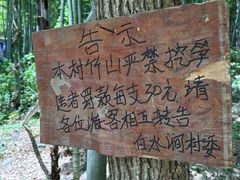 告示
本村竹山严禁挖笋
违者罚款每支30元 请
各位游客相互转告
白水涧村委